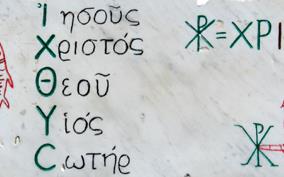 Ἰησοῦς
Χριστός
Θεοῦ
Υἱός
Cωτήρ
☧=ΧΡΙ
☧